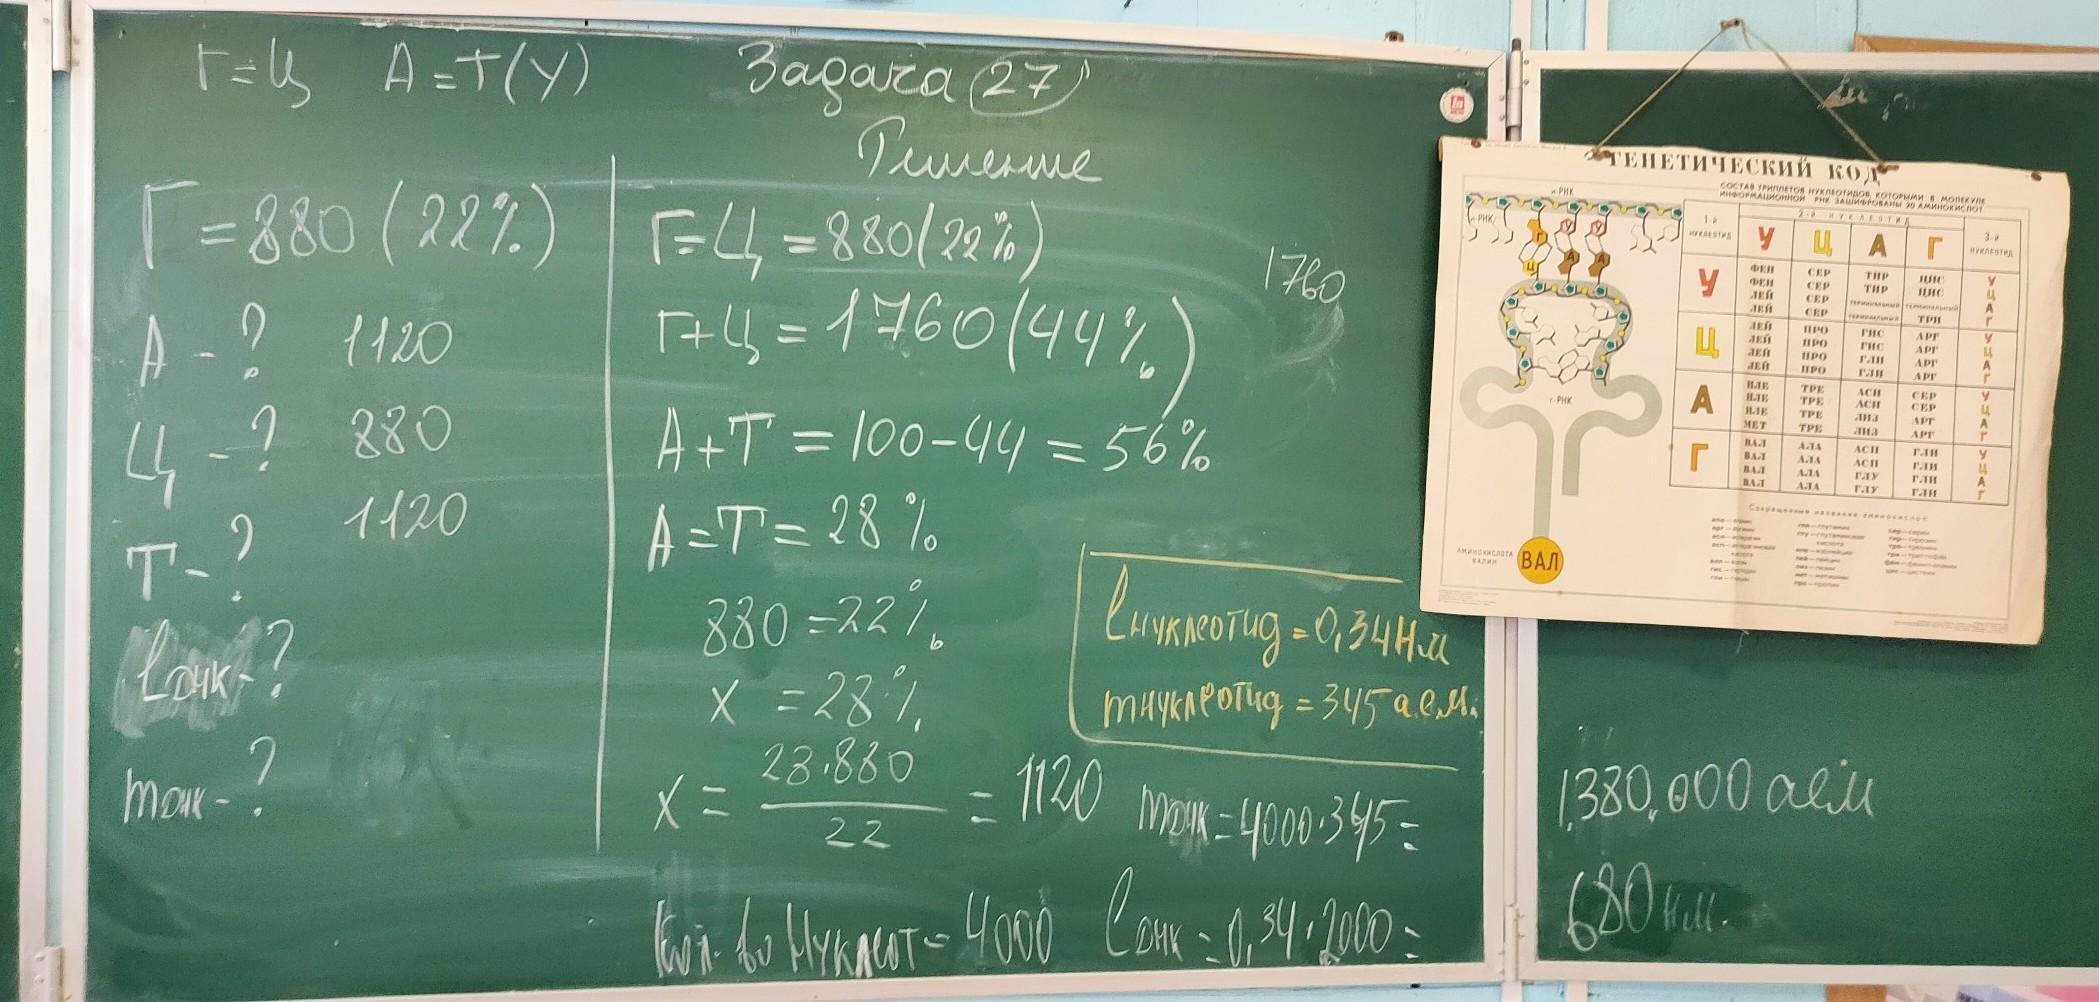 Г=Ц А=Т(У) Задача 27
Решение
Г=880(22%)
А-? 1120
Ц-? 880
Т-? 1120
lднк-?
mднк-?
Г=Ц=880(22%)
Г+Ц=1760(44%)
1760
А+Т=100-44=56%
А=Т=28%
880=22%
х=28%
х=28·880/22=1120
Кол-во нуклеот=4000
lнуклеотид=0,34нм
mнуклеотид=345 а.е.м.
mднк=4000·345=
1.380.000 аем
lднк=0,34·2000=
680 нм.
ГЕНЕТИЧЕСКИЙ КОД
СОСТАВ ТРИПЛЕТОВ НУКЛЕОТИДОВ, КОТОРЫМИ В МОЛЕКУЛЕ
ИНФОРМАЦИОННОЙ РНК ЗАШИФРОВАНЫ 20 АМИНОКИСЛОТ
и-РНК
и-РНК
Г У У
Ц А А
т-РНК
АМИНОКИСЛОТА
ВАЛИН
ВАЛ
1-й НУКЛЕОТИД
2-й НУКЛЕОТИД
3-й НУКЛЕОТИД
У Ц А Г
У
ФЕН СЕР ТИР ЦИС У
ФЕН СЕР ТИР ЦИС Ц
ЛЕЙ СЕР ТЕРМИНАЛЬНЫЙ ТЕРМИНАЛЬНЫЙ А
ЛЕЙ СЕР ТЕРМИНАЛЬНЫЙ ТРИ Г
Ц
ЛЕЙ ПРО ГИС АРГ У
ЛЕЙ ПРО ГИС АРГ Ц
ЛЕЙ ПРО ГЛН АРГ А
ЛЕЙ ПРО ГЛН АРГ Г
А
ИЛЕ ТРЕ АСН СЕР У
ИЛЕ ТРЕ АСН СЕР Ц
ИЛЕ ТРЕ ЛИЗ АРГ А
МЕТ ТРЕ ЛИЗ АРГ Г
Г
ВАЛ АЛА АСП ГЛИ У
ВАЛ АЛА АСП ГЛИ Ц
ВАЛ АЛА ГЛУ ГЛИ А
ВАЛ АЛА ГЛУ ГЛИ Г
Сокращенные названия аминокислот: